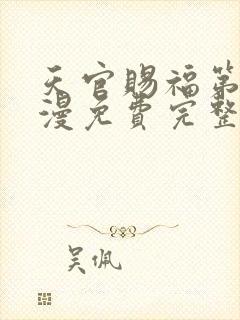 天官赐福第
漫免费完整
吴佩